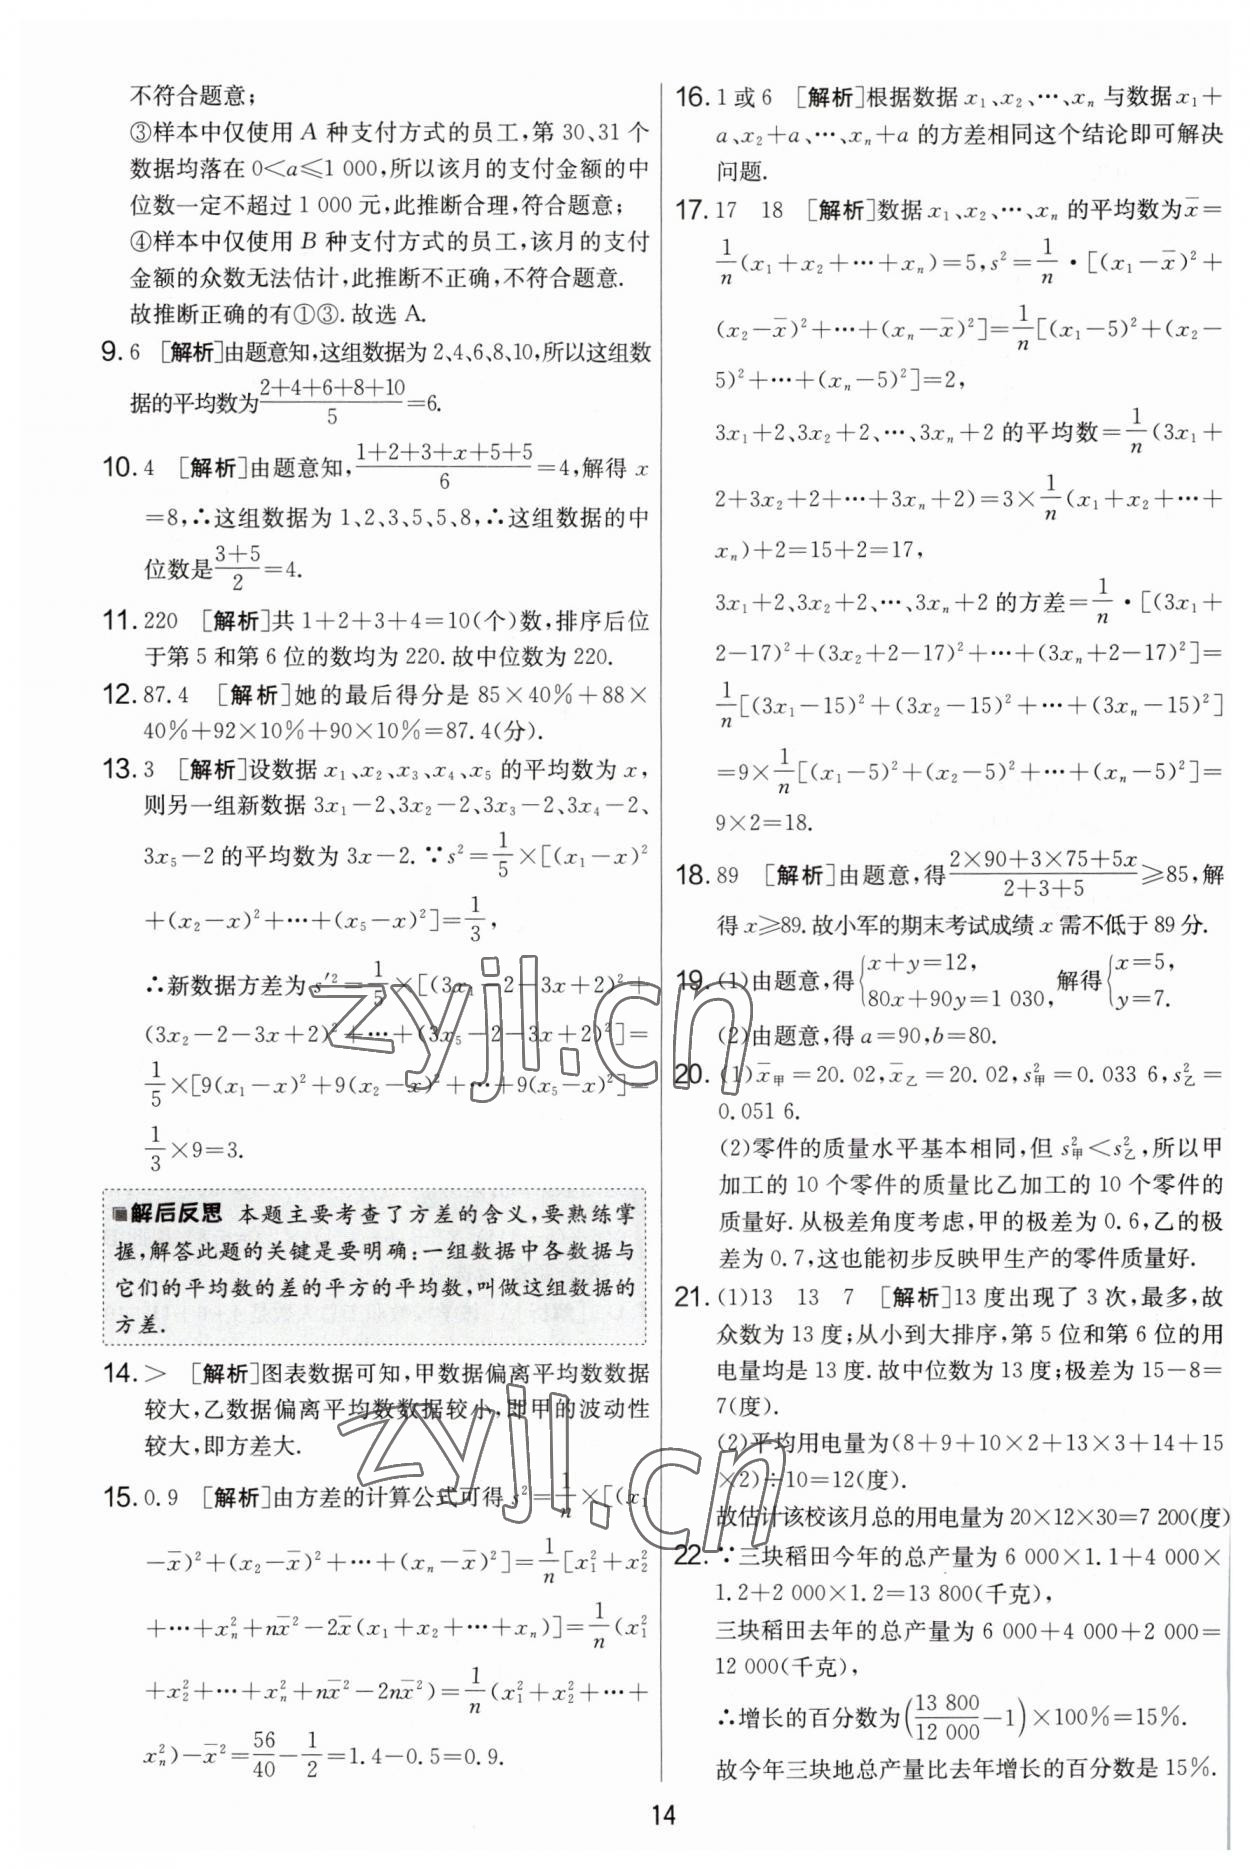 不符合题意;
③样本中仅使用 A 种支付方式的员工,第 30、31 个
数据均落在 0<a≤1 000,所以该月的支付金额的中
位数一定不超过 1 000 元,此推断合理,符合题意;
④样本中仅使用 B 种支付方式的员工,该月的支付
金额的众数无法估计,此推断不正确,不符合题意.
故推断正确的有①③.故选 A.
9. 6 [解析]由题意知,这组数据为 2、4、6、8、10,所以这组数
据的平均数为\frac{2+4+6+8+10}{5}=6.
10. 4 [解析]由题意知,\frac{1+2+3+x+5+5}{6}=4,解得 x
=8,∴这组数据为 1、2、3、5、5、8,∴这组数据的中
位数是\frac{3+5}{2}=4.
11. 220 [解析]共 1+2+3+4=10(个)数,排序后位
于第 5 和第 6 位的数均为 220.故中位数为 220.
12. 87.4 [解析]她的最后得分是 85×40%+88×
40%+92×10%+90×10%=87.4(分).
13. 3 [解析]设数据 x₁、x₂、x₃、x₄、x₅ 的平均数为 x,
则另一组新数据 3x₁-2、3x₂-2、3x₃-2、3x₄-2、
3x₅-2 的平均数为 3x-2.∵s²=\frac{1}{5}×[(x₁-x)²
+(x₂-x)²+⋯+(x₅-x)²]=\frac{1}{3},
∴新数据方差为 s'²=\frac{1}{5}×[(3x₁-2-3x+2)²+
(3x₂-2-3x+2)²+⋯+(3x₅-2-3x+2)²]=
\frac{1}{5}×[9(x₁-x)²+9(x₂-x)²+⋯+9(x₅-x)²]=
\frac{1}{3}×9=3.
解后反思 本题主要考查了方差的含义,要熟练掌
握,解答此题的关键是要明确:一组数据中各数据与
它们的平均数的差的平方的平均数,叫做这组数据的
方差.
14. > [解析]图表数据可知,甲数据偏离平均数数据
较大,乙数据偏离平均数数据较小,即甲的波动性
较大,即方差大.
15. 0.9 [解析]由方差的计算公式可得 s²=\frac{1}{n}×[(x₁
-x̄)²+(x₂-x̄)²+⋯+(xₙ-x̄)²]=\frac{1}{n}[x₁²+x₂²
+⋯+xₙ²+nx̄²-2x̄(x₁+x₂+⋯+xₙ)]=\frac{1}{n}(x₁²
+x₂²+⋯+xₙ²+nx̄²-2nx̄²)=\frac{1}{n}(x₁²+x₂²+⋯+
xₙ²)-x̄²=\frac{56}{40}-\frac{1}{2}=1.4-0.5=0.9.
16. 1 或 6 [解析]根据数据 x₁、x₂、⋯、xₙ 与数据x₁+
a、x₂+a、⋯、xₙ+a 的方差相同这个结论即可解决
问题.
17. 17 18 [解析]数据 x₁、x₂、⋯、xₙ 的平均数为x̄=
\frac{1}{n}(x₁+x₂+⋯+xₙ)=5,s²=\frac{1}{n}·[(x₁-x̄)²+
(x₂-x̄)²+⋯+(xₙ-x̄)²]=\frac{1}{n}[(x₁-5)²+(x₂-
5)²+⋯+(xₙ-5)²]=2,
3x₁+2、3x₂+2、⋯、3xₙ+2 的平均数=\frac{1}{n}(3x₁+
2+3x₂+2+⋯+3xₙ+2)=3×\frac{1}{n}(x₁+x₂+⋯+
xₙ)+2=15+2=17,
3x₁+2、3x₂+2、⋯、3xₙ+2 的方差=\frac{1}{n}·[(3x₁+
2-17)²+(3x₂+2-17)²+⋯+(3xₙ+2-17)²]=
\frac{1}{n}[(3x₁-15)²+(3x₂-15)²+⋯+(3xₙ-15)²]
=9×\frac{1}{n}[(x₁-5)²+(x₂-5)²+⋯+(xₙ-5)²]=
9×2=18.
18. 89 [解析]由题意,得\frac{2×90+3×75+5x}{2+3+5}≥85,解
得 x≥89.故小军的期末考试成绩 x 需不低于 89 分.
19. (1)由题意,得{x+y=12, 80x+90y=1 030, 解得{x=5, y=7.
(2)由题意,得 a=90,b=80.
20. (1)x̄甲=20.02,x̄乙=20.02,s²甲=0.033 6,s²乙=
0.051 6.
(2)零件的质量水平基本相同,但 s²甲<s²乙,所以甲
加工的 10 个零件的质量比乙加工的 10 个零件的
质量好.从极差角度考虑,甲的极差为 0.6,乙的极
差为 0.7,这也能初步反映甲生产的零件质量好.
21. (1)13 13 7 [解析]13 度出现了 3 次,最多,故
众数为 13 度;从小到大排序,第 5 位和第 6 位的用
电量均是 13 度.故中位数为 13 度;极差为 15-8=
7(度).
(2)平均用电量为(8+9+10×2+13×3+14+15
×2)÷10=12(度).
故估计该校该月总的用电量为 20×12×30=7 200(度)
22. ∵三块稻田今年的总产量为 6 000×1.1+4 000×
1.2+2 000×1.2=13 800(千克),
三块稻田去年的总产量为 6 000+4 000+2 000=
12 000(千克),
∴增长的百分数为(\frac{13 800}{12 000}-1)×100%=15%.
故今年三块地总产量比去年增长的百分数是 15%.
14
zyjl.cn
zyjl.cn